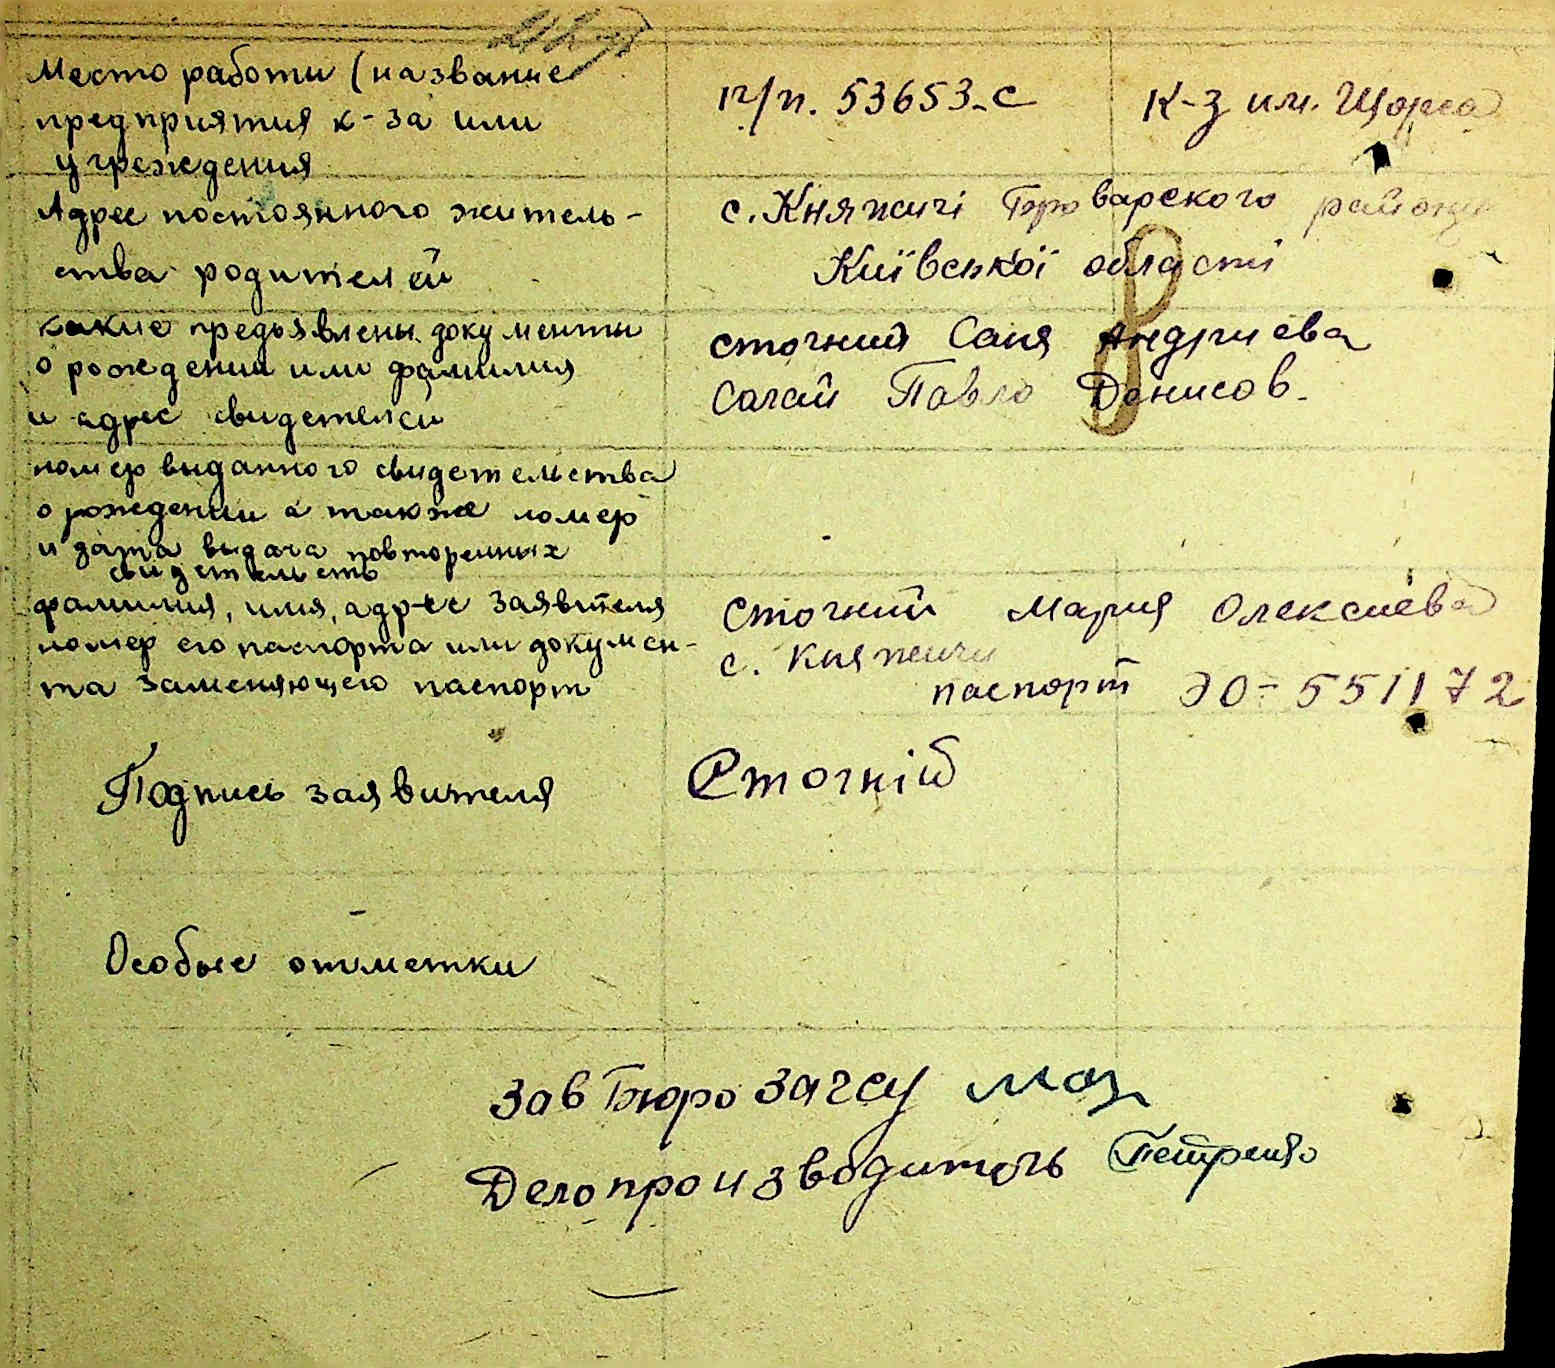 Место работи (название
предприятия к-за или
учреждения
п/п. 53653-с К-з им. Щорса
Адрес постоянного житель-
ства родителей
с. Княжичі Броварского району
Київської області
какие предъявлены документи
о рождении или фамилия
и адрес свидетелей
стогний Саня Андриева
Сагай Павло Денисов.
номер выданного свидетельства
о рождении а также номер
и дата выдача повторенных
свидетельств
фамилия, имя, адрес заявителя
номер его паспорта или докумен-
та заменяющего паспорт
Стогний Мария Олексиева
с. Княжичи
паспорт ЭО-551172
Подпись заявителя Стогній
Особые отметки
Зав Бюро загсу
Делопроизводитель Петренко